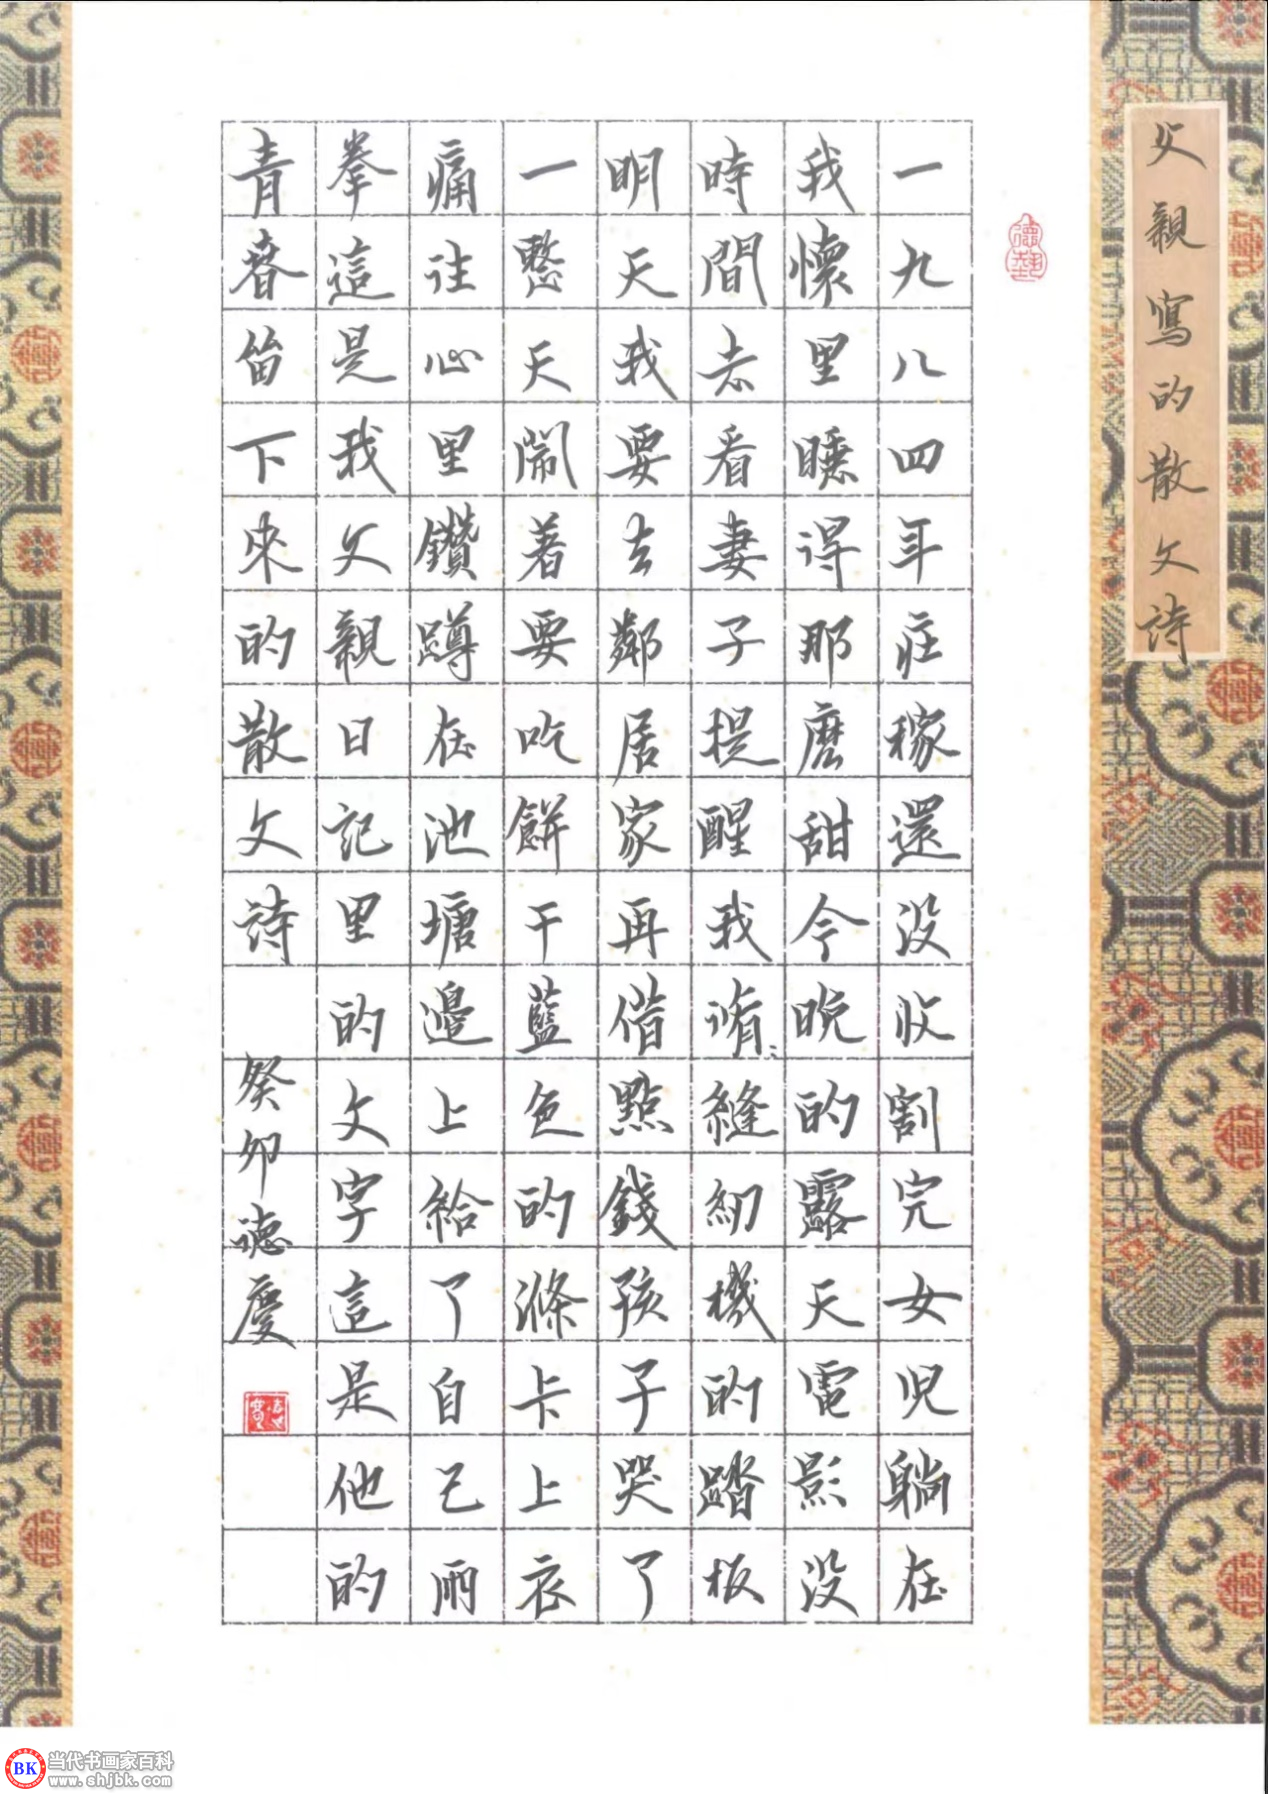 父親寫的散文詩
一九八四年庄稼還没收割完女兒躺在
我懷里睡得那麽甜今晚的露天電影没
時間去看妻子提醒我脩縫紉機的踏板
明天我要去鄰居家再借點錢孩子哭了
一整天鬧着要吃餅干藍色的滌卡上衣
痛往心里鑽蹲在池塘邊上給了自己兩
拳這是我父親日記里的文字這是他的
青春留下來的散文詩
癸卯德慶
当代书画家百科
www.shjbk.com
BK